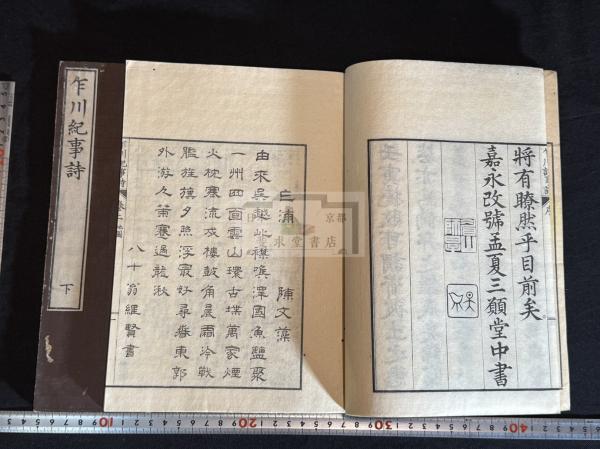 將有瞭然乎目前矣
嘉永改號孟夏三願堂中書
乍浦 陳文藻
由來吳越此襟喉澤國魚鹽聚
一州四面雲山環古堞萬家煙
火枕寒流戍樓鼓角晨霜冷戰
艦旌旗夕照浮最好尋春東郭
外游人簫管過龍湫
八十翁維賢書
乍川紀事詩
下
求堂書店
京都
10
20
30
40